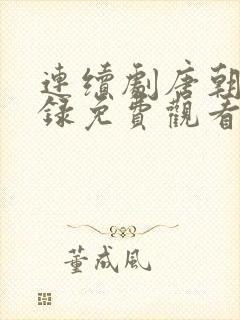 連續劇唐朝
錄免費觀看
董成風